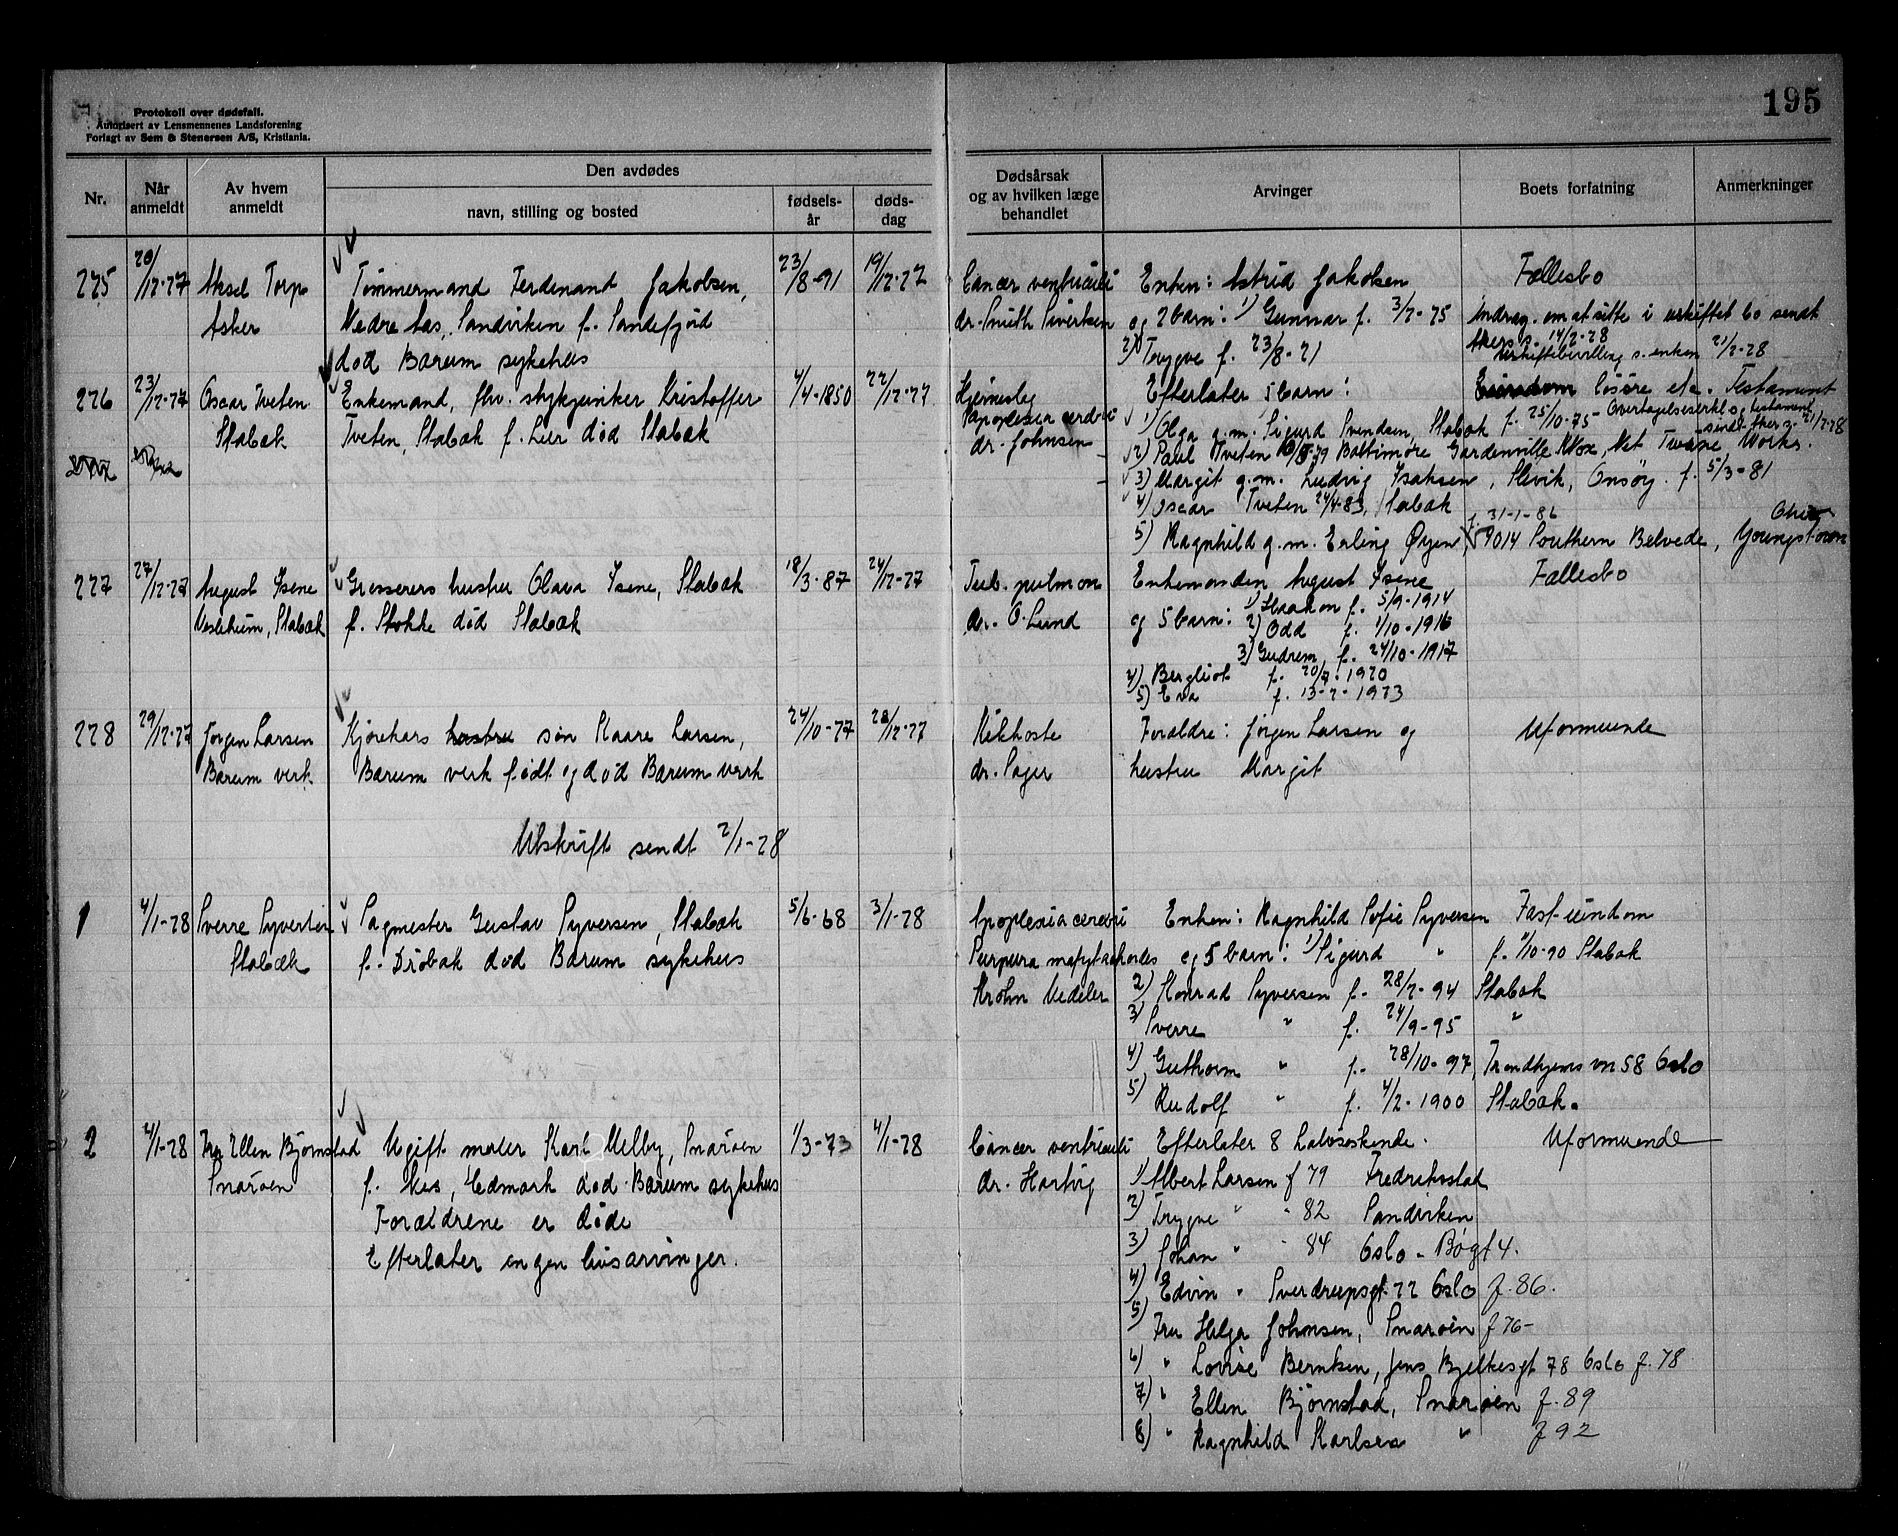 195
Protokoll over dødsfall.
Autorisert av Lensmennenes Landsforening
Forlagt av Sem & Stenersen A/S, Kristiania.
Nr.
Når anmeldt
Av hvem anmeldt
Den avdødes
navn, stilling og bosted
fødsels-år
døds-dag
Dødsårsak og av hvilken læge behandlet
Arvinger
Boets forfatning
Anmerkninger
225 20/12-27 Aksel Torp Tømmermand Ferdinand Jakobsen, 23/8-91 19/12-27 Cancer ventriculi Enken: Astrid Jakobsen Fællesbo
Asker Nedre Aas, Sandviken f. Sandefjord dr. Smith Sivertsen og 2 barn: 1) Gunnar f. 3/2-25 Andrag. om at sitte i uskiftet bo sendt
død Bærum sykehus 2) Trygve f. 23/8-21 Akers s. 14/2-28
uskiftebevilling s. enken 21/2-28
226 23/12-27 Oscar Tveten Enkemand, fhv. skykjæniker Kristoffer 4/4-1850 22/12-27 Hjerneslag Efterlater 5 barn: Eiendom løsøre etc. Testament
Stabæk Tveten, Stabæk f. Lier død Stabæk Apoplexia cerebri 1) Olga g.m. Sigurd Svendsen, Stabæk f. 25/10-75 - Overtagelseserkl og testament
sendt Aker s. 21/2-28
dr. Johnsen 2) Paul Tveten 10/8-79 Baltimore Gardenville Box, Nat. Works.
3) Margit g.m. Ludvig Isaksen, Slevik, Onsøy. f. 5/3-81
4) Oscar Tveten 24/4-83, Stabæk
f. 31-1-86 Ohio
5) Ragnhild g.m. Erling Øyen, 9014 Southern Belvede, Youngstown
227 27/12-27 August Isene Grosserers hustru Olava Isene, Stabæk 18/3-87 24/12-27 Tub. pulmon Enkemanden August Isene Fællesbo
Vesleheim, Stabæk f. Stokke død Stabæk dr. O. Lund og 5 barn: 1) Haakon f. 5/9-1914
2) Odd f. 1/10-1916
3) Gudrun f. 24/10-1917
4) Bergliot f. 20/7-1920
5) Eva f. 13-2-1923
228 29/12-27 Jørgen Larsen Kjørekars hustru søn Kaare Larsen, 24/10-27 28/12-27 Kikhoste Forældre: Jørgen Larsen og Uformuende
Bærum verk Bærum verk født og død Bærum verk dr. Sager hustru Margit
Utskrift sendt 2/1-28
1 4/1-28 Sverre Syvertsen Sagmester Gustav Syversen, Stabæk 5/6-68 3/1-28 Apoplexia cerebri Enken: Ragnhild Sofie Syversen Fast eiendom
Stabæk f. Drøbak død Bærum sykehus Purpura og 5 barn: 1) Sigurd " f. 11/10-90 Stabæk
Krohn Vedeler 2) Konrad Syversen f. 28/2-94 Stabæk
3) Sverre " f. 24/9-95 "
4) Guthorm " f. 28/10-97, Trondhjems vn 58 Oslo
5) Rudolf " f. 4/2-1900 Stabæk.
2 4/1-28 Fru Ellen Bjørnstad Ugift maler Karl Melby, Snarøen 1/3-73 4/1-28 Cancer ventriculi Efterlater 8 halvsøskende. Uformuende
Snarøen f. Nes, Hedmark død Bærum sykehus dr. Hartvig 1) Albert Larsen f 79 Fredriksstad
Forældrene er døde 2) Trygve " " 82 Sandviken
Efterlater ingen livsarvinger. 3) Johan " " 84 Oslo - Bøgt 4.
4) Edvin " Sverdrupsgt 22 Oslo f. 86.
5) Fru Helga Johnsen, Snarøen f 76-
6) " Lovise Berntsen, Jens Bjelkesgt 78 Oslo f. 78
7) " Ellen Bjørnstad, Snarøen f. 89
8) " Ragnhild Karlsen " f 92